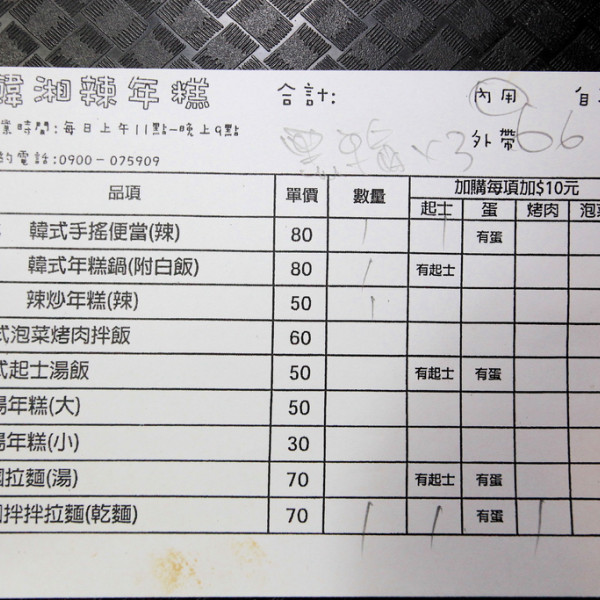 韓湘辣年糕 合計: 內用 自
業時間:每日上午11點-晚上9點 x3 外帶 66
約電話:0900-075909
品項 單價 數量 加購每項加$10元
起士 蛋 烤肉 泡菜
韓式手搖便當(辣) 80 1 1 有蛋
韓式年糕鍋(附白飯) 80 1 有起士
辣炒年糕(辣) 50 1
式泡菜烤肉拌飯 60
式起士湯飯 50 有起士 有蛋
湯年糕(大) 50
湯年糕(小) 30
國拉麵(湯) 70 有起士 有蛋
國拌拌拉麵(乾麵) 70 1 1 有蛋 1